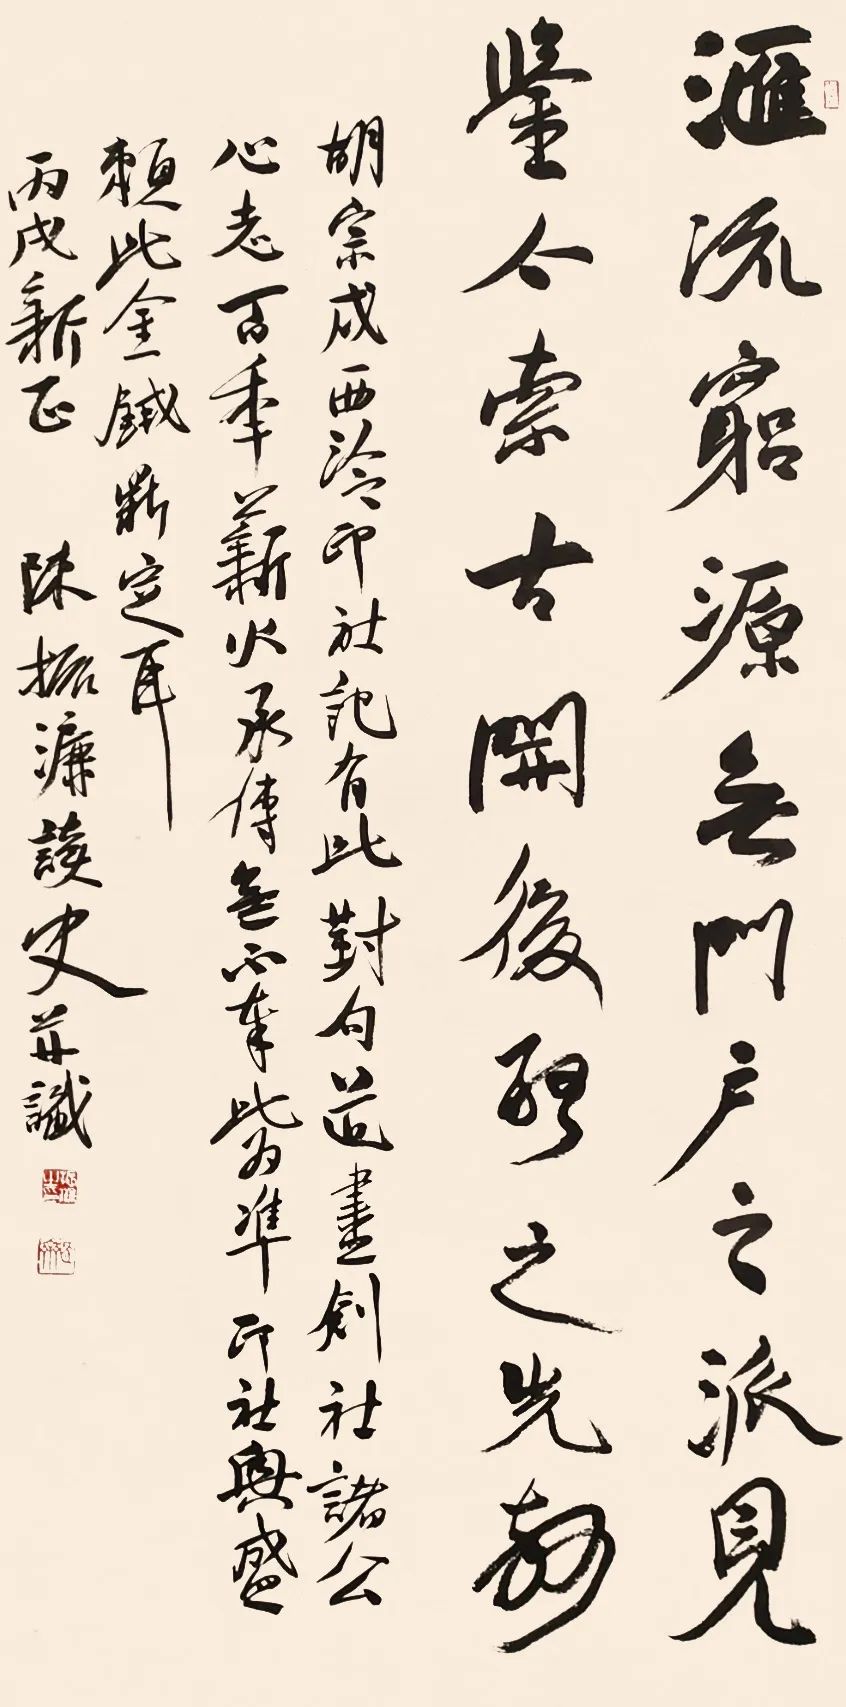 滙流窮源無門戶之派見
鑒今索古開後之先
胡宗成西泠印社記有此對句道盡創社諸公
心志百秊薪火承傳無不奉此為準印社興盛
賴此金鍼鼎定耳
丙戌新正 陳振濂讀史并識